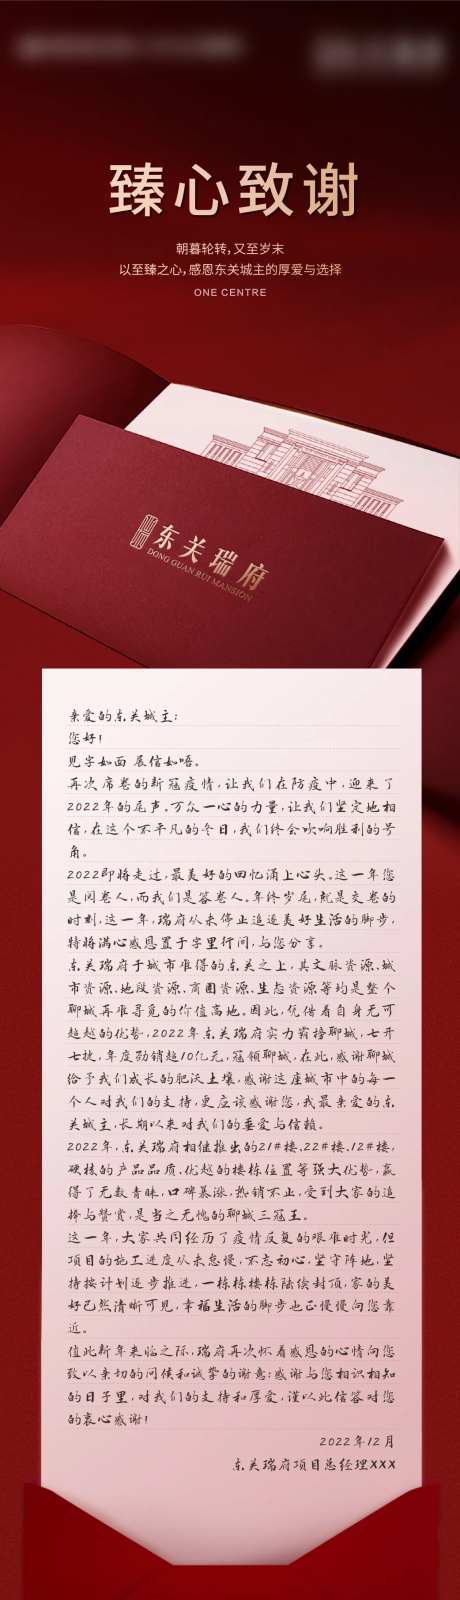 臻心致谢
朝暮轮转,又至岁末
以至臻之心,感恩东关城主的厚爱与选择
ONE CENTRE
东关瑞府
DONG GUAN RUI MANSION
亲爱的东关城主:
您好!
见字如面 展信如唔。
再次席卷的新冠疫情,让我们在防疫中,迎来了
2022年的尾声。万众一心的力量,让我们坚定地相
信,在这个不平凡的冬日,我们终会吹响胜利的号
角。
2022即将走过,最美好的回忆涌上心头。这一年您
是阅卷人,而我们是答卷人。年终岁尾,就是交卷的
时刻,这一年,瑞府从未停止追逐美好生活的脚步,
特将满心感恩置于字里行间,与您分享。
东关瑞府于城市难得的东关之上,其文脉资源、城
市资源、地段资源、商圈资源、生态资源等均是整个
聊城再难寻觅的价值高地。因此,凭借着自身无可
超越的优势,2022年东关瑞府实力霸榜聊城,七开
七捷,年度劲销超10亿元,冠领聊城,在此,感谢聊城
给予我们成长的肥沃土壤,感谢这座城市中的每一
个人对我们的支持,更应该感谢您,我最亲爱的东
关城主,长期以来对我们的垂爱与信赖。
2022年,东关瑞府相继推出的21#楼、22#楼、12#楼,
硬核的产品品质、优越的楼栋位置等强大优势,赢
得了无数青睐,口碑暴涨,热销不止,受到大家的追
捧与赞赏,是当之无愧的聊城三冠王。
这一年,大家共同经历了疫情反复的艰难时光,但
项目的施工进度从未怠慢,不忘初心,坚守阵地,坚
持按计划逐步推进,一栋栋楼栋陆续封顶,家的美
好已然清晰可见,幸福生活的脚步也正慢慢向您靠
近。
值此新年来临之际,瑞府再次怀着感恩的心情向您
致以亲切的问候和诚挚的谢意:感谢与您相识相知
的日子里,对我们的支持和厚爱,谨以此信答对您
的衷心感谢!
2022年12月
东关瑞府项目总经理XXX